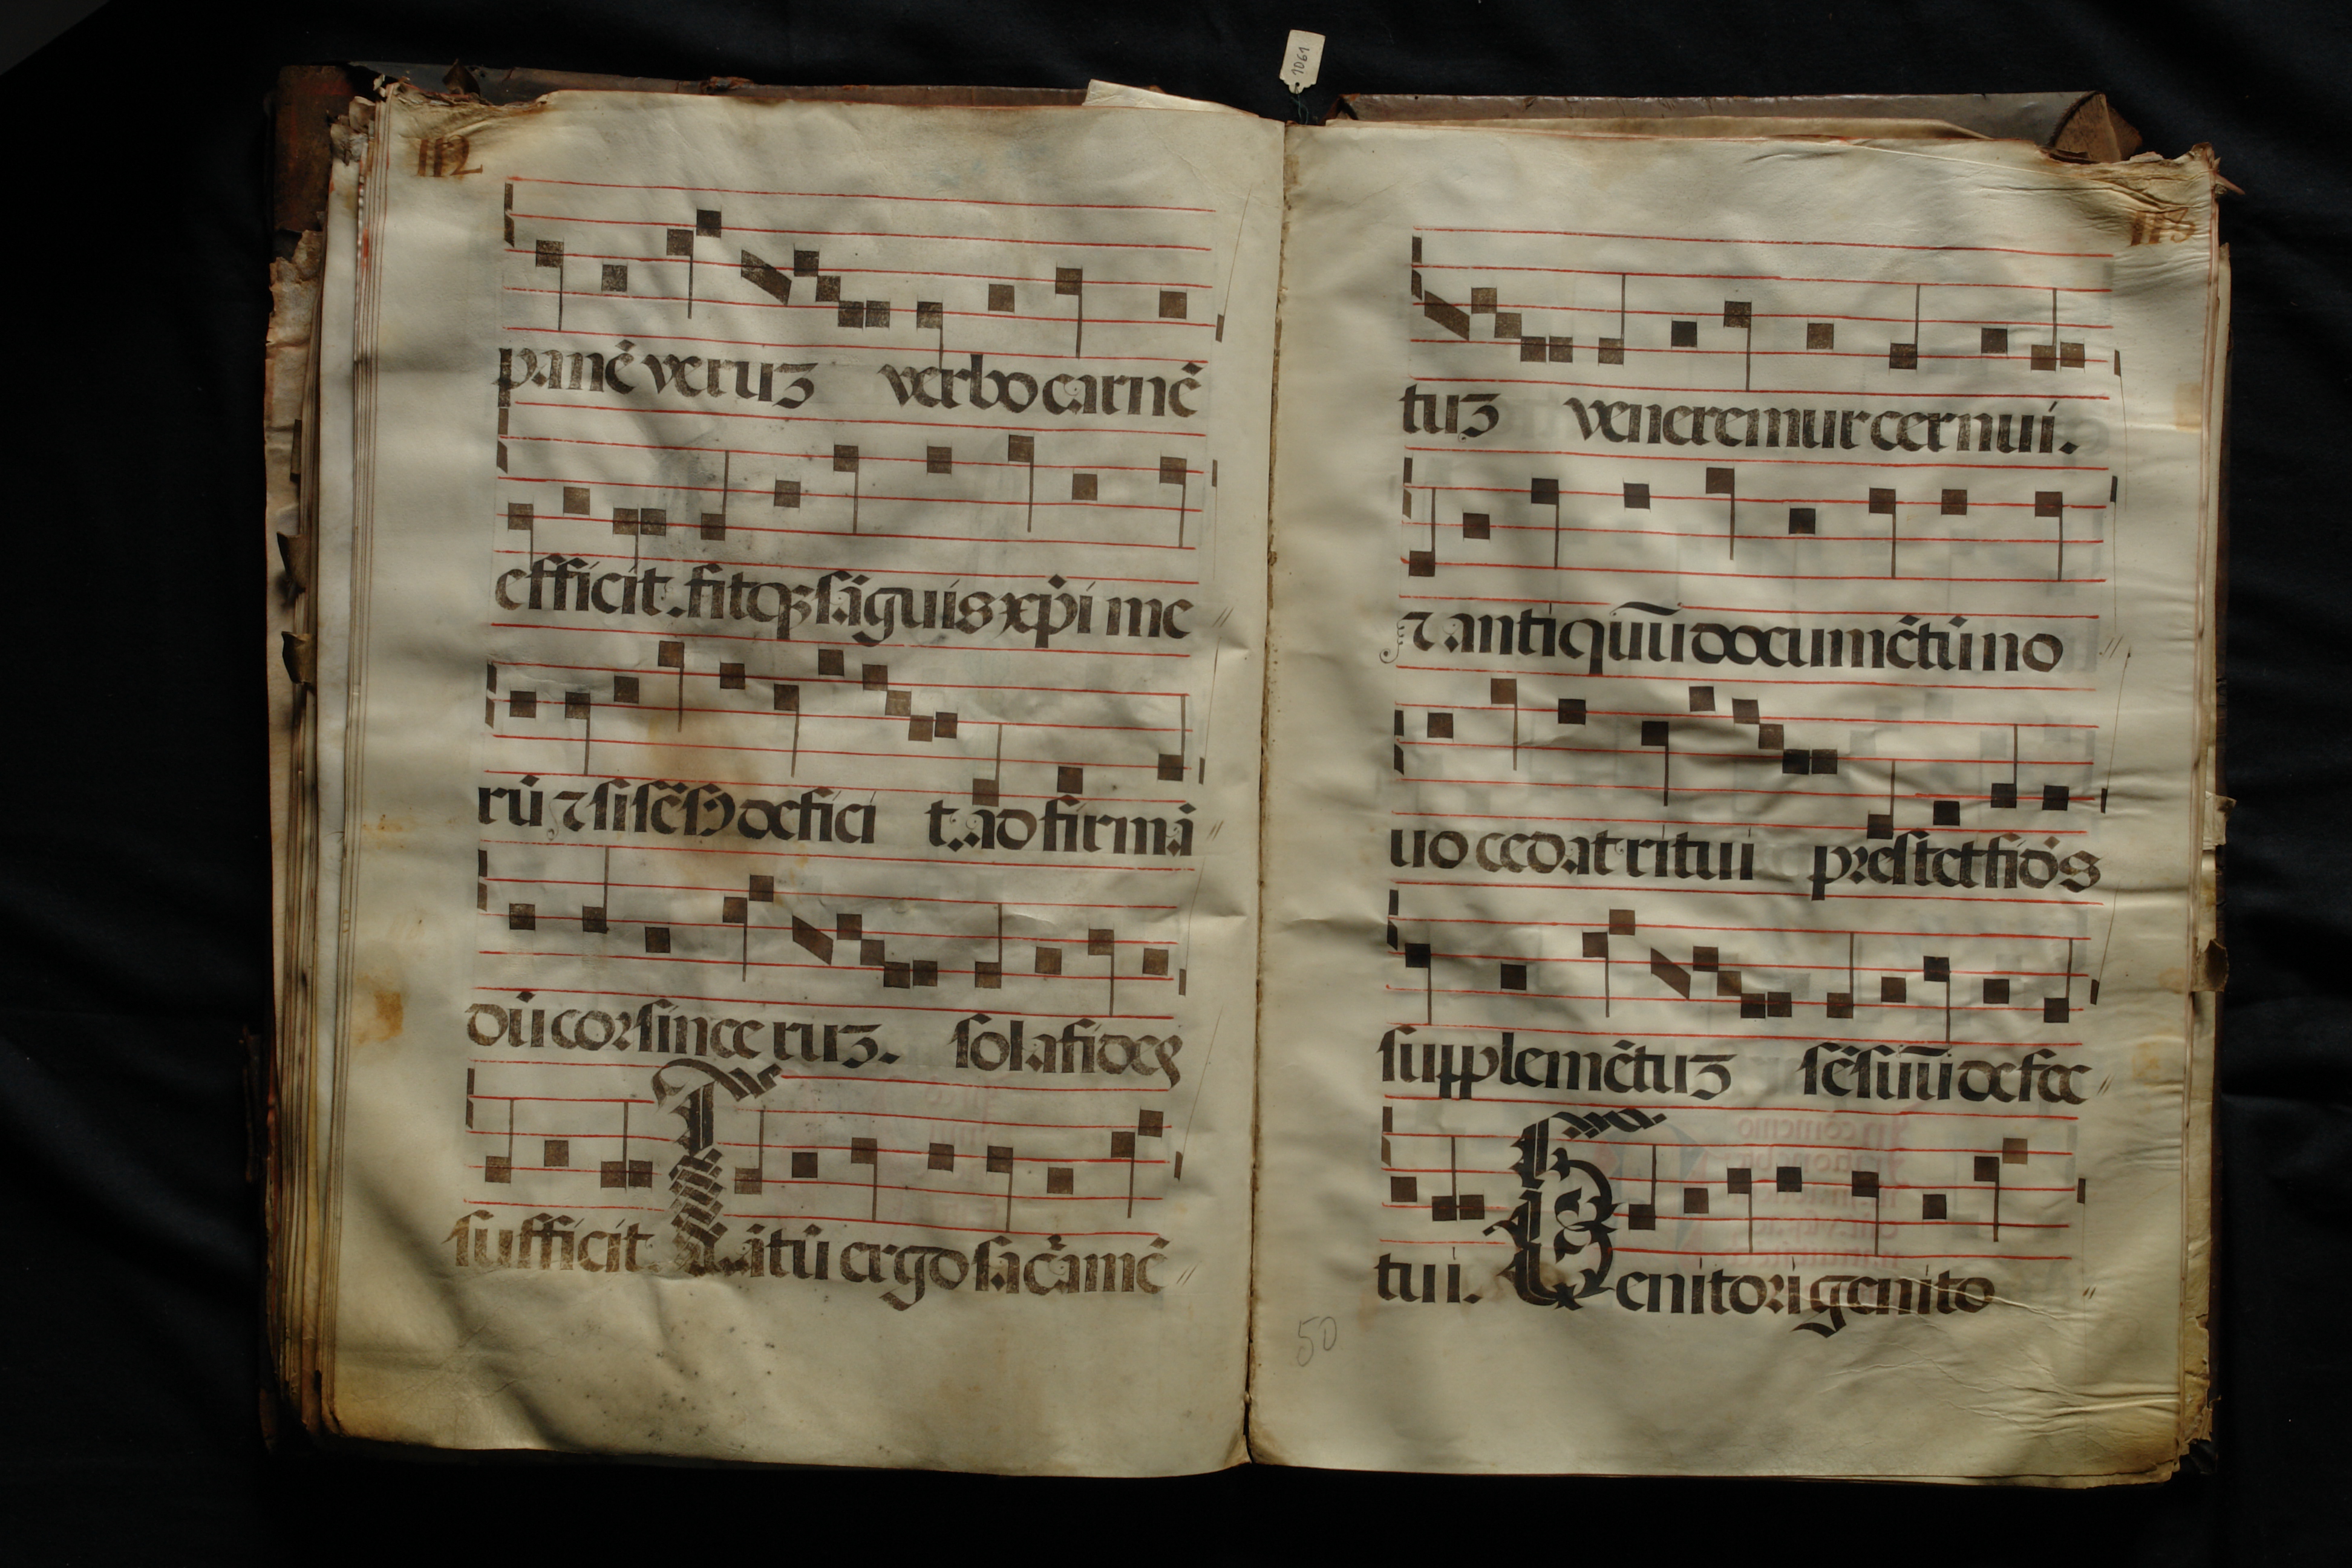 1061
112
panē veruz verbo carnē
efficit. fitqz sāguis xp̄i me
rū ⁊ si sēsꝰ defici t. ad firmā
dū cor since ruz. sola fides
sufficit. Tātū ergo sac̄amē
113
tuz veneremur cernui.
⁊ antiquū documētū no
uo cedat ritui prestet fidēs
supplemētuz sēsuū defec
tui. Genitori genito
50